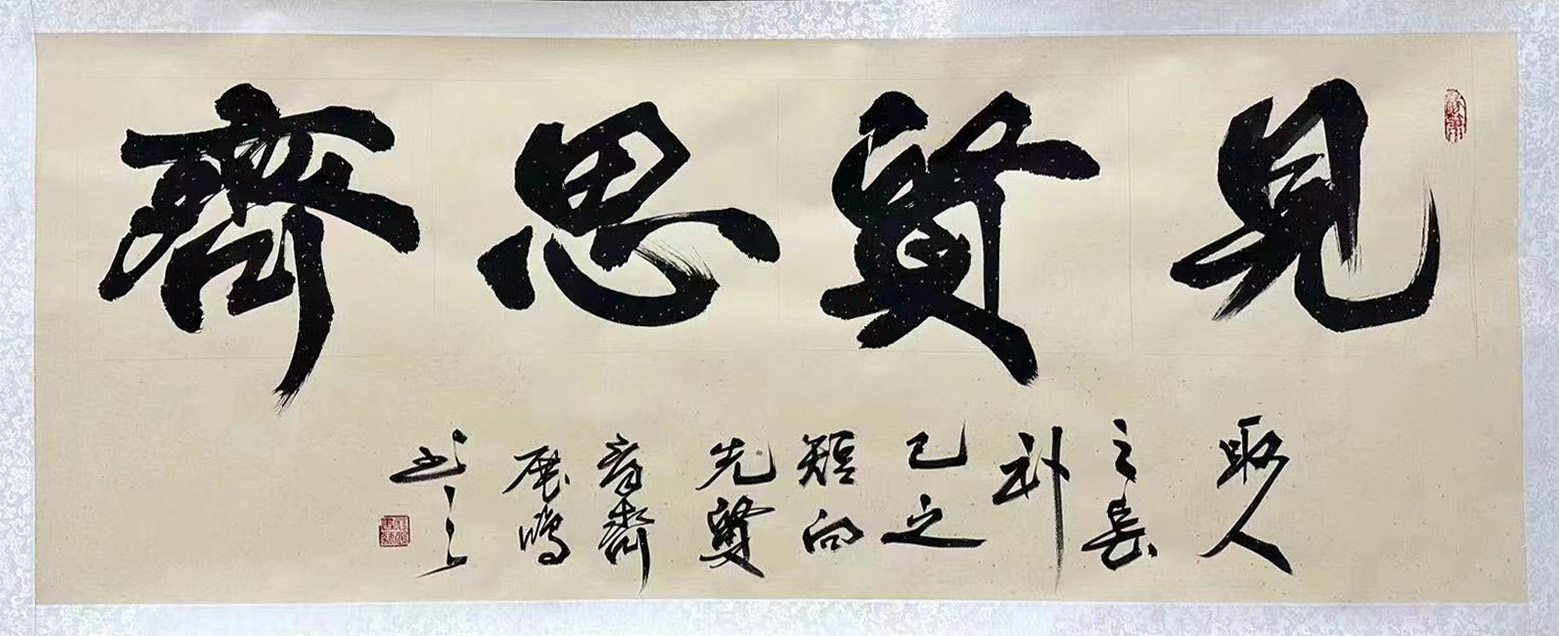 見賢思齊
取人
之長
補
己之
短向
先賢
看齊
展鴻
書之